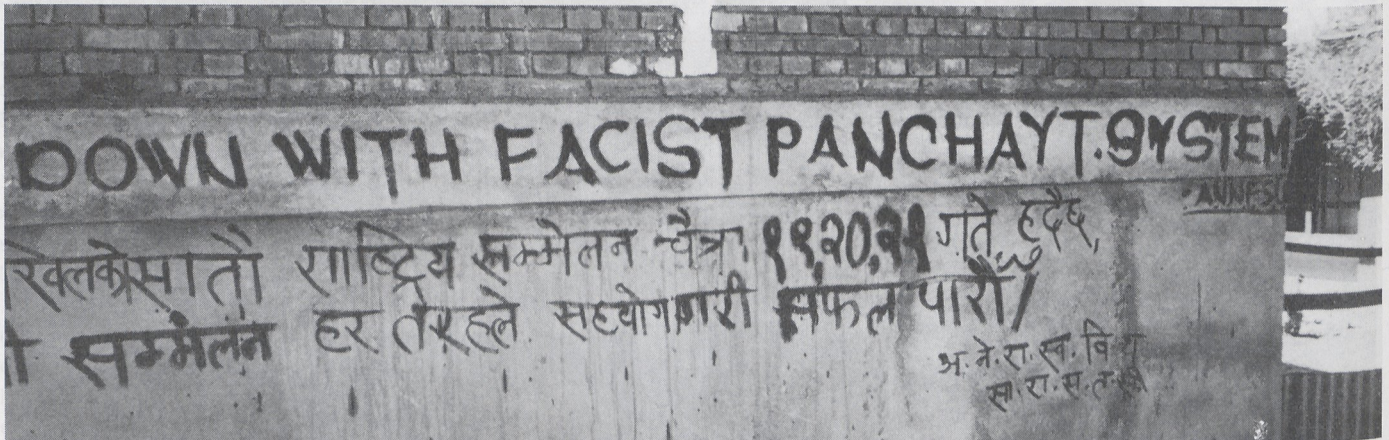 DOWN WITH FACIST PANCHAYT.SYSTEM
ANNFSU
सातौ राष्ट्रिय सम्मेलन चैत्र १९,२०,२१ गते हुदैछ,
सम्मेलन हर तरहले सहयोग गरी सफल पारौं/
अ.ने.रा.स्व.वि.यु